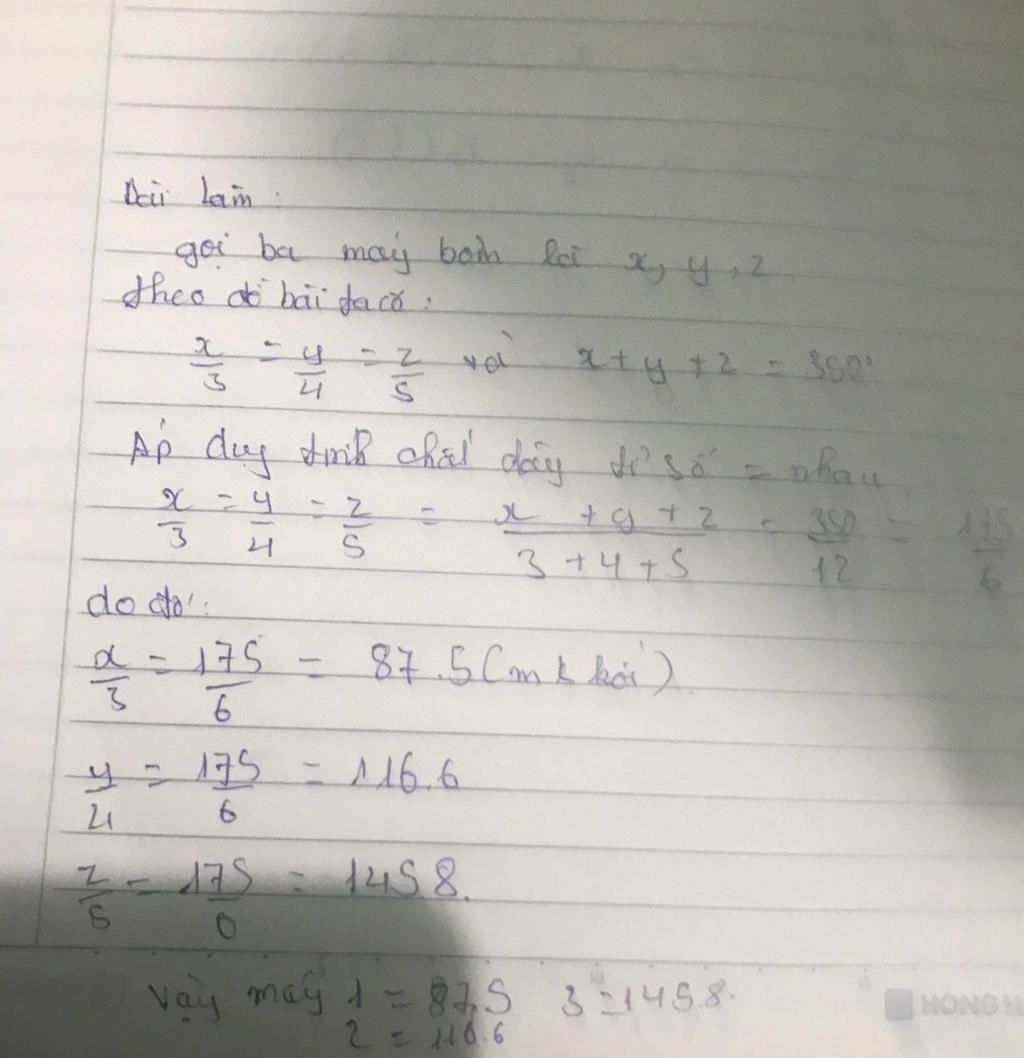 Bài làm :
gọi ba máy bơm là x, y, z
theo đề bài ta có :
x/3 = y/4 = z/5 và x + y + z = 350
Áp dụg tính chất dãy tỉ số = nhau
x/3 = y/4 = z/5 = x + y + z / 3 + 4 + 5 = 350/12 = 175/6
do đó :
x/3 = 175/6 = 87.5 (m k khối)
y/4 = 175/6 = 116.6
z/5 = 175/0 = 145.8.
Vậy máy 1 = 87.5 3 = 145.8.
2 = 116.6
HONG H